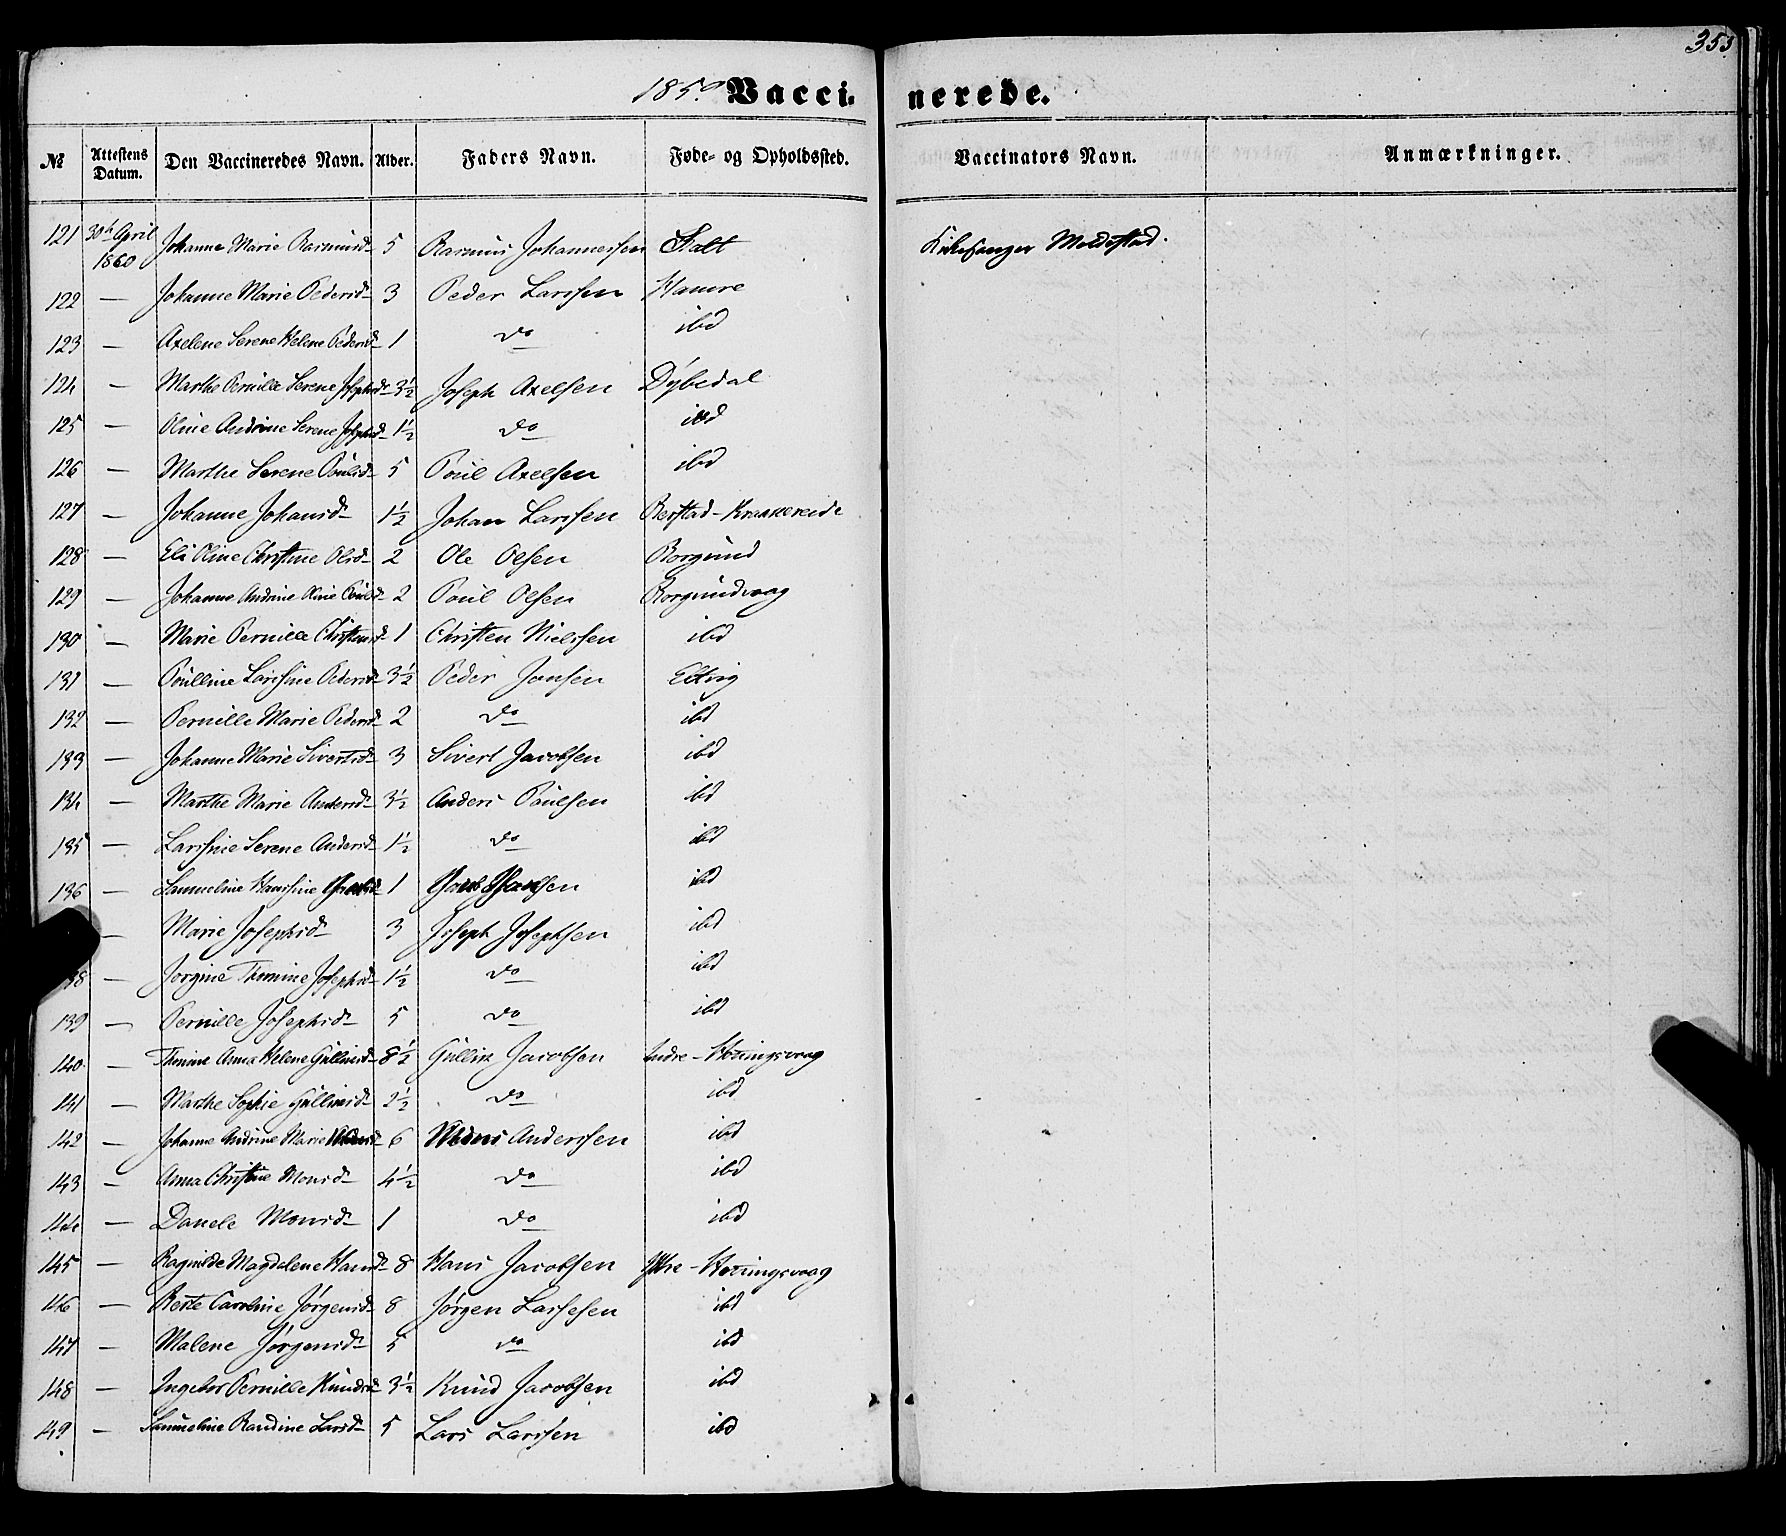 353
1859 Vaccinerede.
№ Attestens Datum. Den Vaccineredes Navn. Alder. Faders Navn. Føde- og Opholdssted. Vaccinators Navn. Anmærkninger.
121 30th April 1860 Johanne Marie Rasmusd 5 Rasmus Johannessen Statt Kirkesanger Moldestad.
122 — Johanne Marie Pedersd 3 Peder Larssen Hamre
123 — Axelene Serene Helene Pedersd 1 do ibd
124 — Marthe Pernille Serene Josephsd 3½ Joseph Axelsen Dybedal
125 — Oline Andrine Serene Josephsd 1½ do ibd
126 — Marthe Serene Poulsd 5 Poul Axelsen ibd
127 — Johanne Johansd 1½ Johan Larssen Berstad-
128 — Eli Oline Christine Olsd 2 Ole Olsen Borgund
129 — Johanne Andrine Oline Poulsd 2 Poul Olsen Borgundvaag
130 — Marie Pernille Christensd 1 Christen Nielssen ibd
131 — Poulline Larsine Pedersd 3½ Peder Jansen
132 — Pernille Marie Pedersd 2 do ibd
133 — Johanne Marie Sivertsd 3 Sivert Jacobsen ibd
134 — Marthe Marie Andersd 3½ Anders Poulsen ibd
135 — Larsine Serene Andersd 1½ do ibd
136 — Samueline Hansine 1 ibd
— Marie Josephsd 3 Joseph Josephsen ibd
138 — Jorgine Thomine Josephsd 1½ do ibd
139 — Pernille Josephsd 5 do ibd
140 — Thomine Anna Helene Gulliksd 8½ Gullik Jacobsen Indre-Honningsvaag
141 — Marthe Sophie Gulliksd 2½ do ibd
142 — Johanne Andrine Marie Monsd 6 Mons Anderssen ibd
143 — Anna Christine Monsd 4½ do ibd
144 — Danele Monsd 1 do ibd
145 — Ragnilde Magdalene Hansd 8 Hans Jacobsen Ytre-Honningsvaag
146 — Berte Caroline Jørgensd 8 Jørgen Larssen ibd
147 — Malene Jørgensd 5 do ibd
148 — Ingebor Pernille Knudsd 3½ Knud Jacobsen ibd
149 — Samueline Randine Larsd 5 Lars Larssen ibd